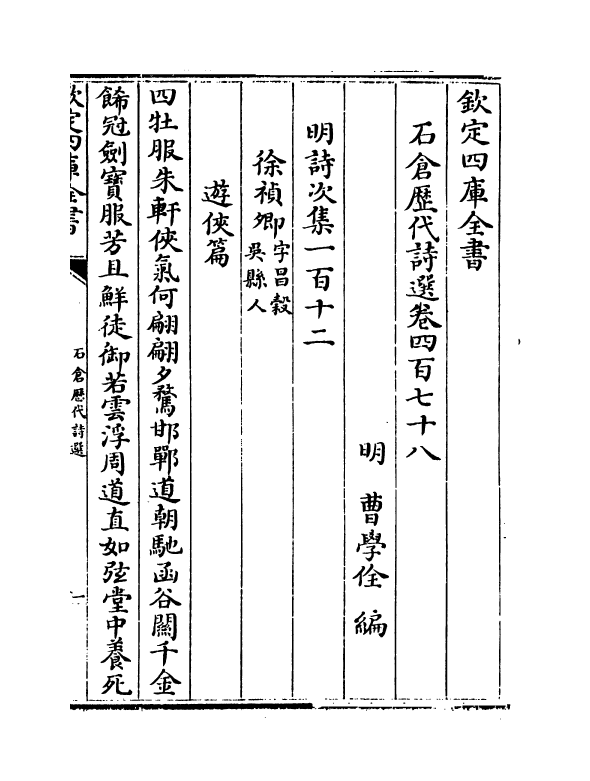 欽定四庫全書
石倉歷代詩選卷四百七十八
明 曹學佺 編
明詩次集一百十二
徐禎卿字昌穀吳縣人
遊俠篇
四牡服朱軒俠氣何翩翩夕騖邯鄲道朝馳函谷關千金
餙冠劍寶服芳且鮮徒御若雲浮周道直如弦堂中養死
欽定四庫全書
石倉歷代詩選
一